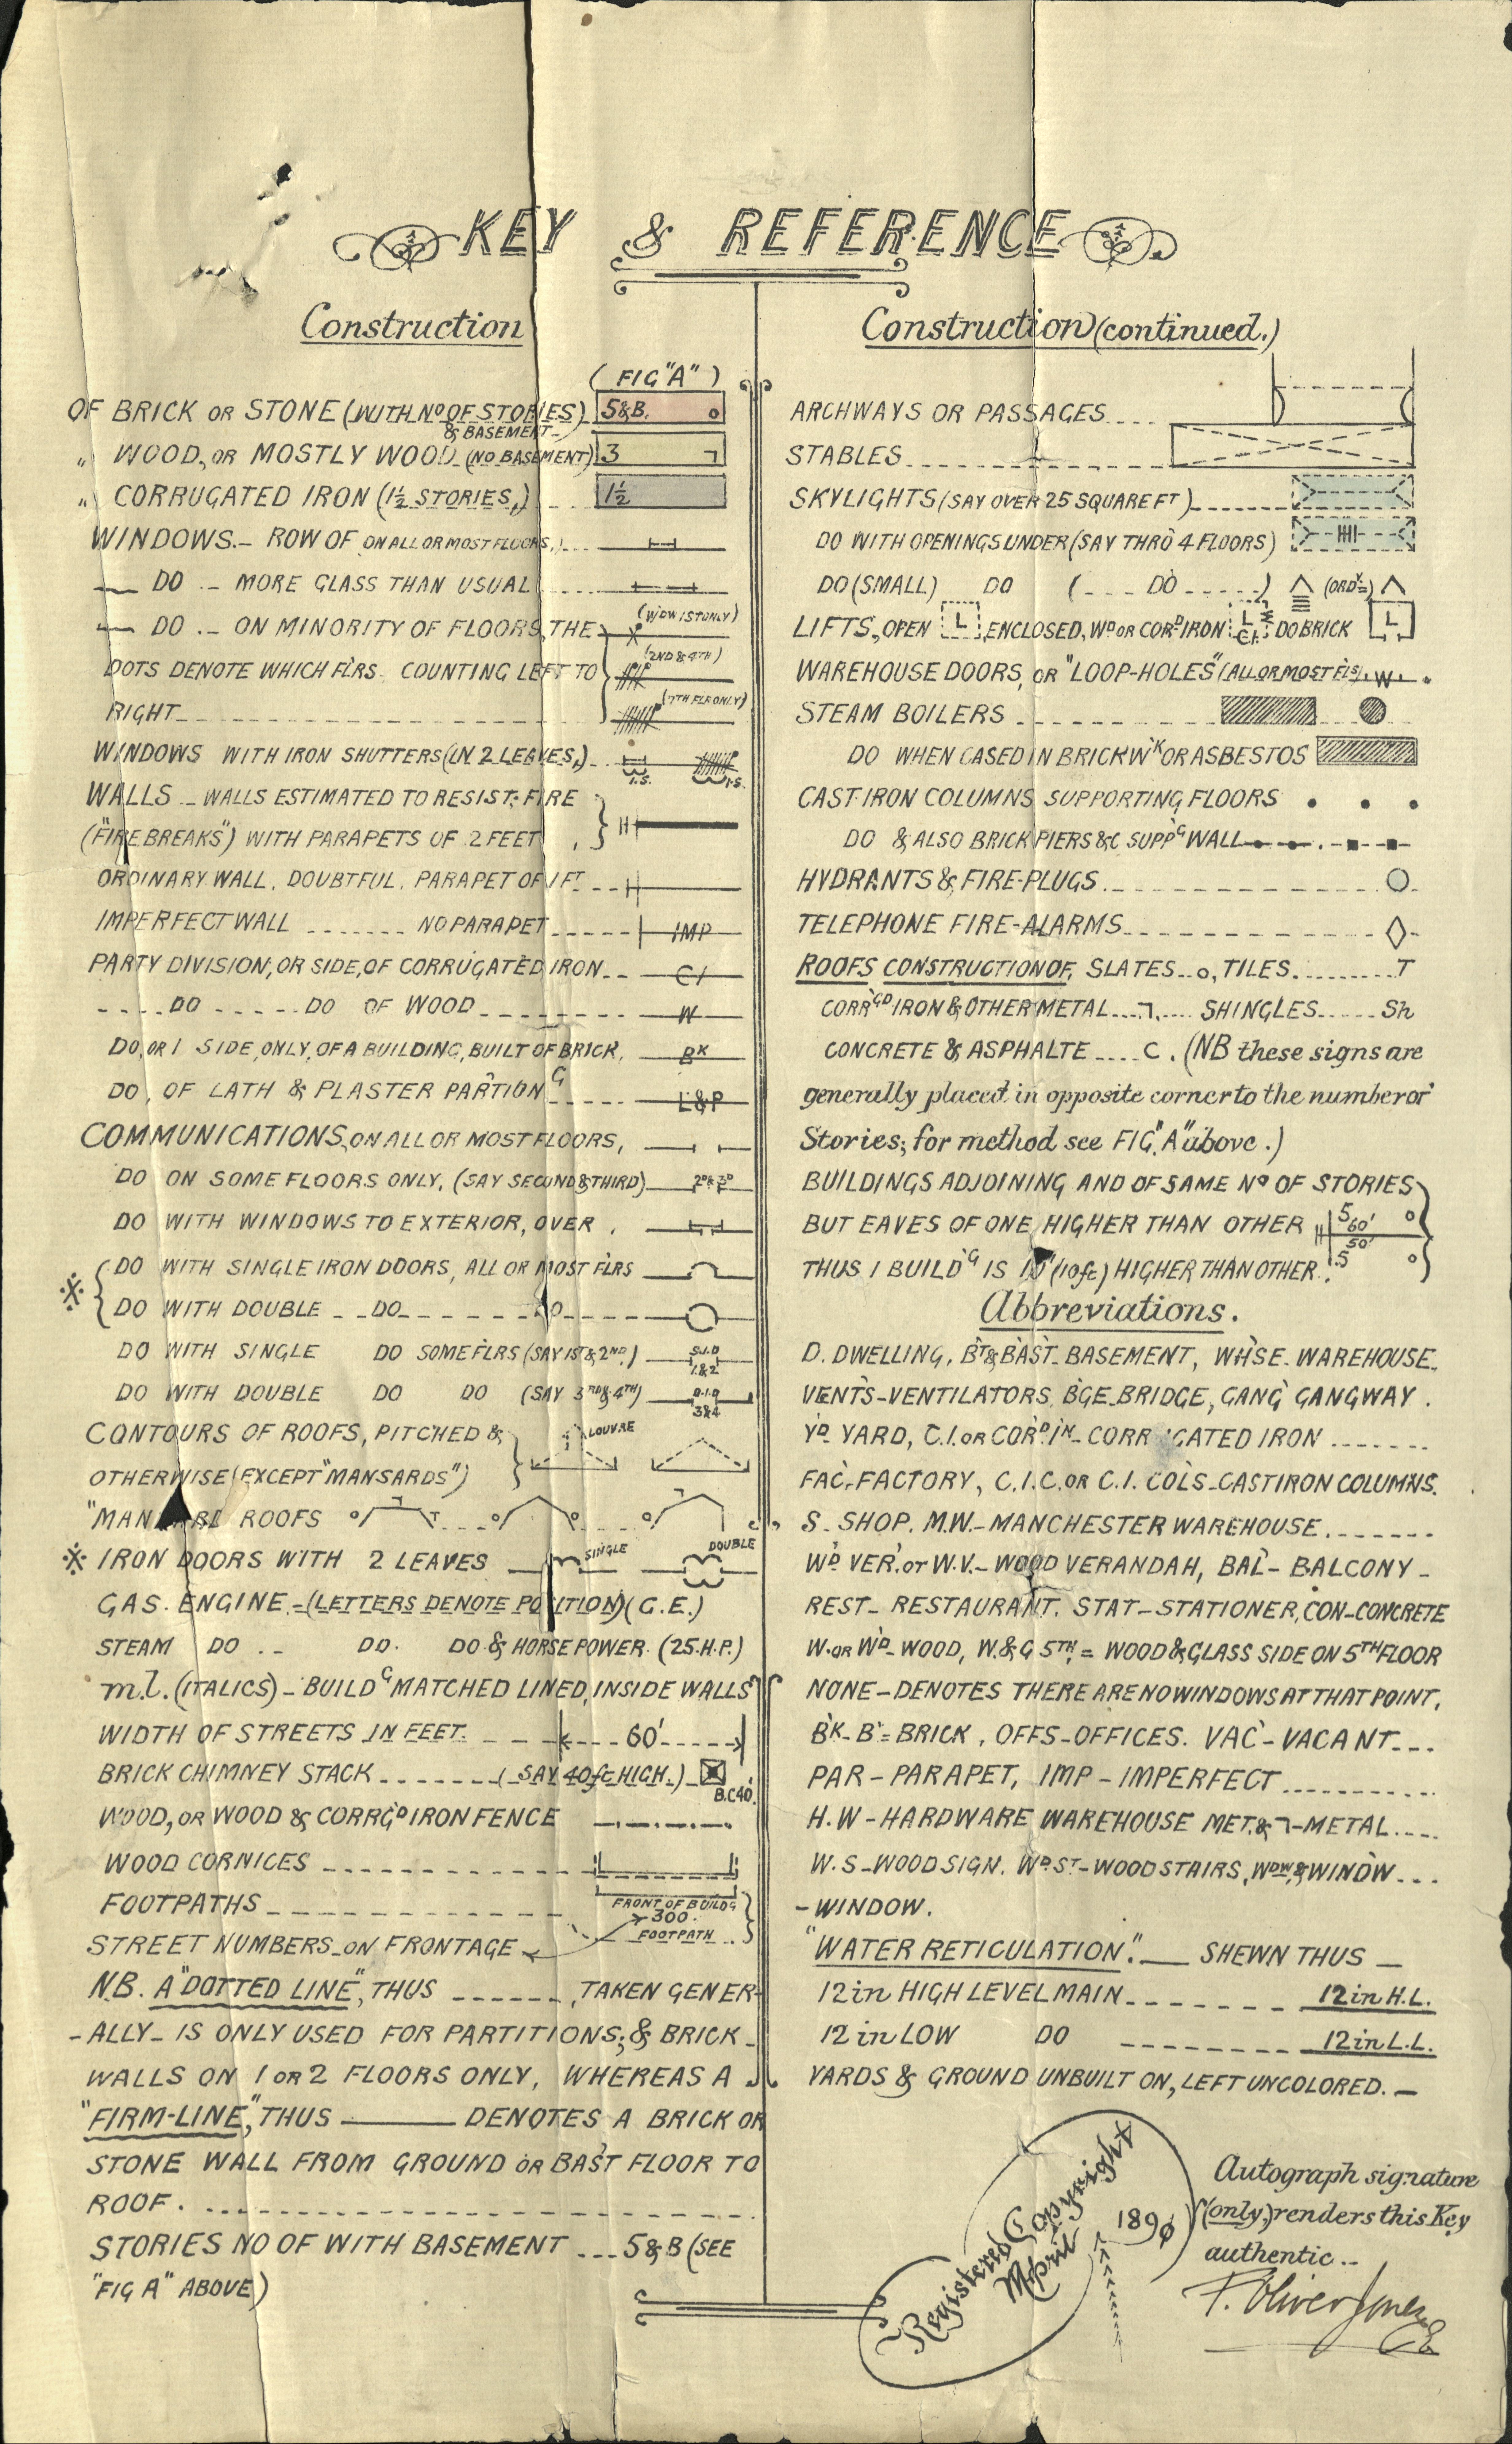 KEY & REFERENCE
Construction
(FIG "A")
OF BRICK OR STONE (WITH No OF STORIES) 5&B. o
& BASEMENT
" WOOD, OR MOSTLY WOOD (NO BASEMENT) 3 ㄱ
" CORRUGATED IRON (1½ STORIES,) 1½
WINDOWS.- ROW OF ON ALL OR MOST FLOORS,)
DO .- MORE GLASS THAN USUAL
DO .- ON MINORITY OF FLOORS, THE (WDW 1ST ONLY)
DOTS DENOTE WHICH FLRS. COUNTING LEFT TO (2ND & 4TH)
RIGHT (7TH FLR ONLY)
WINDOWS WITH IRON SHUTTERS (IN 2 LEAVES,) I.S. I.S.
WALLS - WALLS ESTIMATED TO RESIST FIRE
("FIRE BREAKS") WITH PARAPETS OF 2 FEET
ORDINARY WALL, DOUBTFUL, PARAPET OF 1 FT
IMPERFECT WALL ....... NO PARAPET IMP
PARTY DIVISION, OR SIDE, OF CORRUGATED IRON CI
DO DO OF WOOD W
DO, OR 1 SIDE, ONLY, OF A BUILDING, BUILT OF BRICK, BK
DO, OF LATH & PLASTER PARTIONG L&P
COMMUNICATIONS, ON ALL OR MOST FLOORS,
DO ON SOME FLOORS ONLY, (SAY SECOND & THIRD) 2D & 3D
DO WITH WINDOWS TO EXTERIOR, OVER
DO WITH SINGLE IRON DOORS, ALL OR MOST FLRS
※ DO WITH DOUBLE DO DO
DO WITH SINGLE DO SOME FLRS (SAY 1ST & 2ND) S.I.D 1.&2
DO WITH DOUBLE DO DO (SAY 3RD & 4TH) D.I.D 3&4
CONTOURS OF ROOFS, PITCHED & LOUVRE
OTHERWISE (EXCEPT "MANSARDS")
"MANSARD ROOFS
※ IRON DOORS WITH 2 LEAVES SINGLE DOUBLE
GAS ENGINE - (LETTERS DENOTE POSITION) (G.E.)
STEAM DO .- DO. DO & HORSE POWER (25.H.P.)
m.l. (ITALICS) - BUILDG MATCHED LINED, INSIDE WALLS
WIDTH OF STREETS IN FEET. 60'
BRICK CHIMNEY STACK (SAY 40ft HIGH.) B.C 40'
WOOD, OR WOOD & CORRGD IRON FENCE
WOOD CORNICES
FOOTPATHS FRONT OF BUILDG
300.
FOOTPATH
STREET NUMBERS ON FRONTAGE
N.B. A "DOTTED LINE", THUS ------, TAKEN GENER-
-ALLY- IS ONLY USED FOR PARTITIONS; & BRICK
WALLS ON 1 OR 2 FLOORS ONLY, WHEREAS A
"FIRM-LINE", THUS ——— DENOTES A BRICK OR
STONE WALL FROM GROUND OR BAST FLOOR TO
ROOF.
STORIES NO OF WITH BASEMENT ... 5&B (SEE
"FIG A" ABOVE)
Construction (continued.)
ARCHWAYS OR PASSAGES
STABLES
SKYLIGHTS (SAY OVER 25 SQUARE FT)
DO WITH OPENINGS UNDER (SAY THRO' 4 FLOORS)
DO (SMALL) DO ( DO ) (ORDY=)
LIFTS, OPEN L ENCLOSED, WD OR CORD IRON L C.I. DO BRICK L
WAREHOUSE DOORS, OR "LOOP-HOLES" (ALL OR MOST FLS) W
STEAM BOILERS
DO WHEN CASED IN BRICKWK OR ASBESTOS
CAST IRON COLUMNS SUPPORTING FLOORS
DO & ALSO BRICK PIERS &C SUPPG WALL
HYDRANTS & FIRE-PLUGS
TELEPHONE FIRE-ALARMS
ROOFS CONSTRUCTION OF, SLATES .. o, TILES. T
CORRGD IRON & OTHER METAL ... ㄱ.... SHINGLES ..... Sh
CONCRETE & ASPHALTE .... C. (NB these signs are
generally placed in opposite corner to the number of
Stories; for method see FIG. "A" above.)
BUILDINGS ADJOINING AND OF SAME No OF STORIES
BUT EAVES OF ONE HIGHER THAN OTHER 5 60' o 50'
THUS 1 BUILDG IS 10' (10ft) HIGHER THAN OTHER 5 o
Abbreviations.
D. DWELLING, BT & BAST. BASEMENT, WHSE. WAREHOUSE.
VENTS-VENTILATORS, BGE. BRIDGE, GANG' GANGWAY.
YD YARD, C.I. OR CORD IN- CORRUGATED IRON
FAC.-FACTORY, C.I.C. OR C.I. COLS-CAST IRON COLUMNS.
S. SHOP. M.W.- MANCHESTER WAREHOUSE
WD VER. or W.V.- WOOD VERANDAH, BAL- BALCONY -
REST- RESTAURANT. STAT-STATIONER, CON-CONCRETE
W. OR WD- WOOD, W.&G 5TH = WOOD & GLASS SIDE ON 5TH FLOOR
NONE - DENOTES THERE ARE NO WINDOWS AT THAT POINT,
BK- B'= BRICK, OFFS-OFFICES. VAC'-VACANT
PAR - PARAPET, IMP - IMPERFECT
H.W - HARDWARE WAREHOUSE MET. & ㄱ-METAL
W.S-WOOD SIGN. WD ST-WOOD STAIRS, WDW, & WINDW
- WINDOW.
"WATER RETICULATION". — SHEWN THUS —
12 in HIGH LEVEL MAIN 12 in H.L.
12 in LOW DO 12 in L.L.
YARDS & GROUND UNBUILT ON, LEFT UNCOLORED. —
Registered Copyright
April 1890
Autograph signature
(only,) renders this Key
authentic ..
F. Oliver Jones